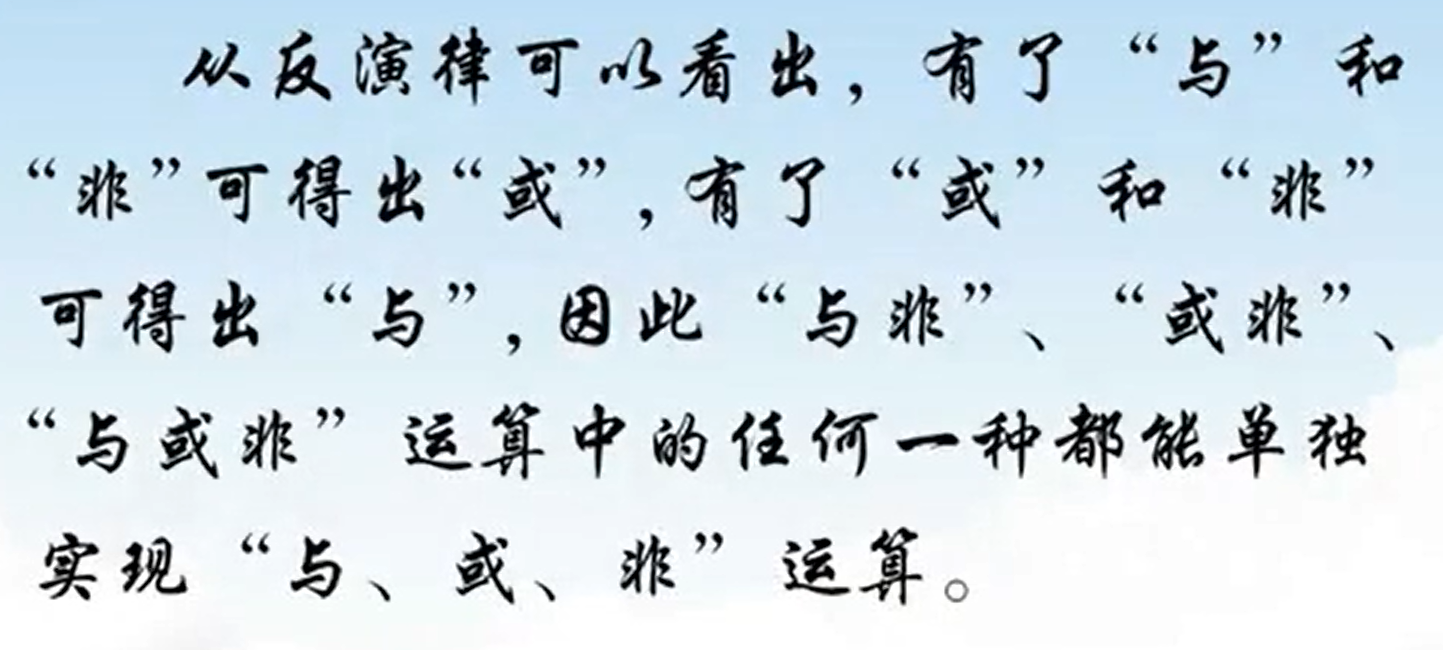 从反演律可以看出，有了“与”和
“非”可得出“或”，有了“或”和“非”
可得出“与”，因此“与非”、“或非”、
“与或非”运算中的任何一种都能单独
实现“与、或、非”运算。